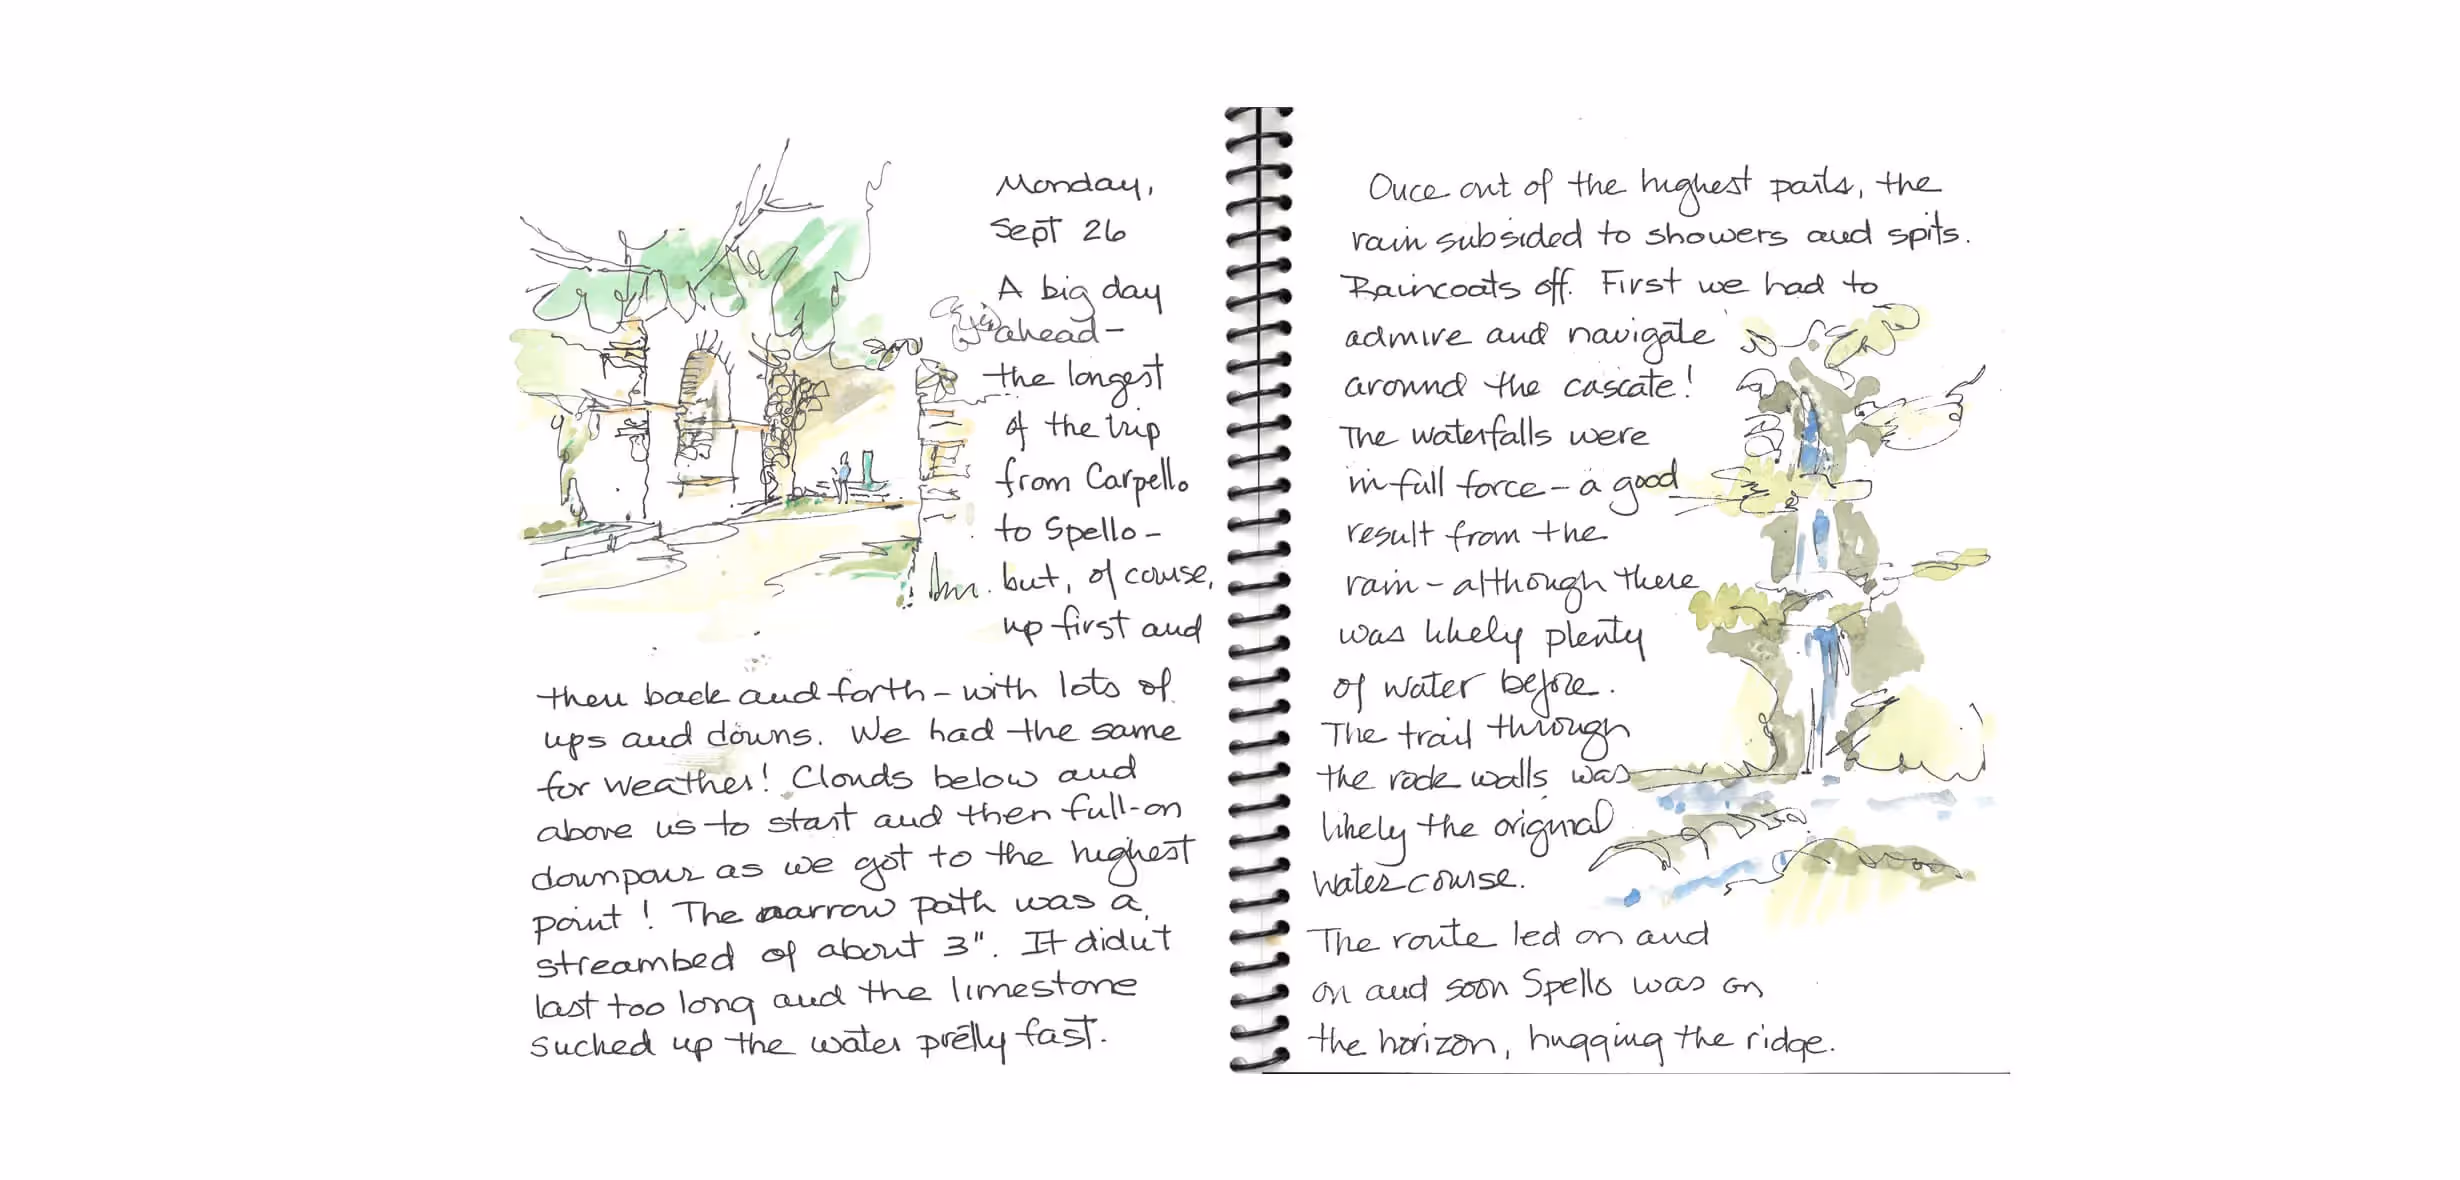 Monday,
Sept 26
A big day
ahead –
the longest
of the trip
from Carpello
to Spello –
but, of course,
up first and
then back and forth – with lots of
ups and downs. We had the same
for weather! Clouds below and
above us to start and then full-on
downpour as we got to the highest
point! The narrow path was a
streambed of about 3". It didn't
last too long and the limestone
sucked up the water pretty fast.
Once out of the highest parts, the
rain subsided to showers and spits.
Raincoats off. First we had to
admire and navigate
around the cascate!
The waterfalls were
in full force – a good
result from the
rain – although there
was likely plenty
of water before.
The trail through
the rock walls was
likely the original
watercourse.
The route led on and
on and soon Spello was on
the horizon, hugging the ridge.